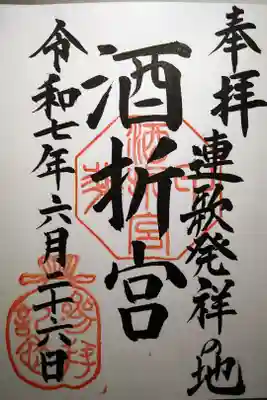 奉拝
連歌発祥の地
酒折宮
令和七年六月二十六日